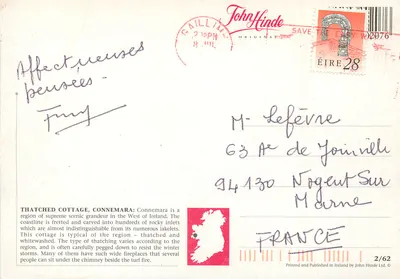 John Hinde
ORIGINAL
2 30PM
SAVE
ÉIRE 28
Affectueuses
pensées -
Mr Lefèvre
63 Ae de Joinville
94130 Nogent Sur
Marne
FRANCE
THATCHED COTTAGE, CONNEMARA: Connemara is a
region of supreme scenic grandeur in the West of Ireland. The
coastline is fretted and carved into hundreds of rocky inlets
which are almost indistinguishable from its numerous lakelets.
This cottage is typical of the region – thatched and
whitewashed. The type of thatching varies according to the
region, and is often carefully pegged down to resist the winter
storms. Many of these have such wide fireplaces that several
people can sit under the chimney beside the turf fire.
2/62
Printed and Published in Ireland by John Hinde Ltd. ©